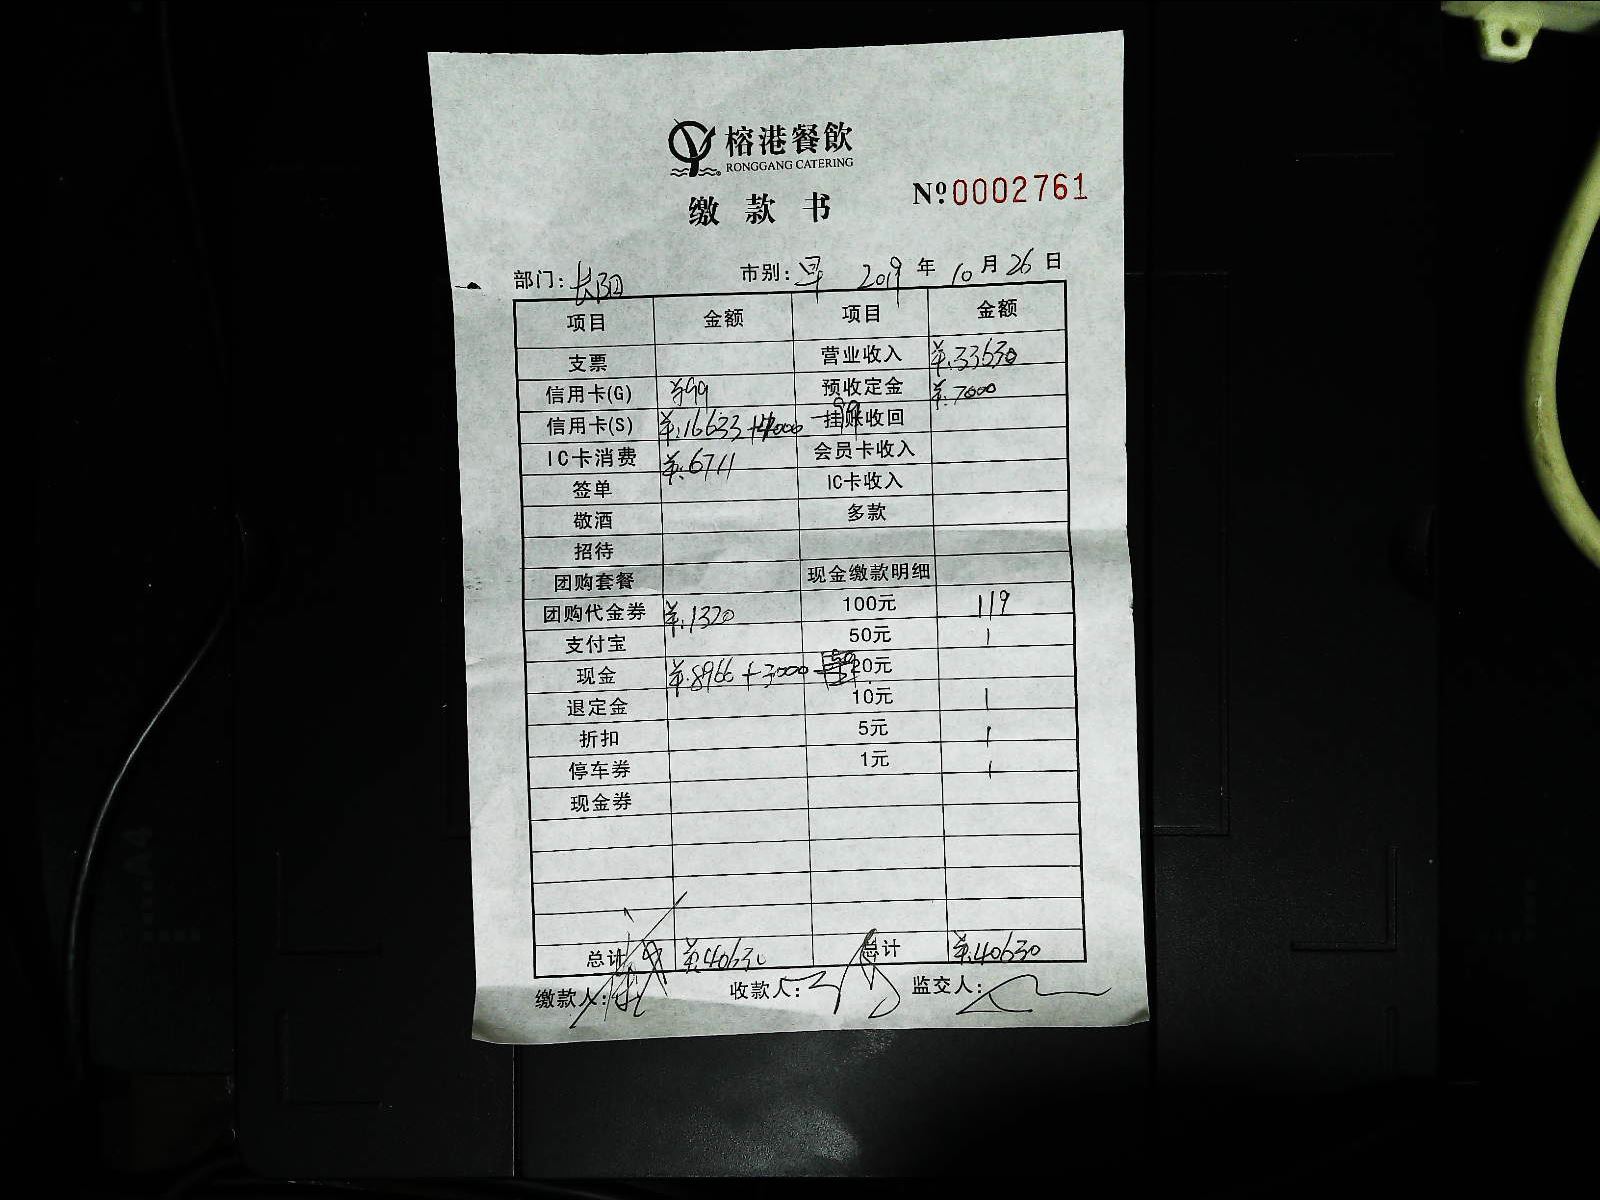 榕港餐飲
RONGGANG CATERING
缴款书 №0002761
部门:长阳 市别:早 2019年10月26日
项目 金额 项目 金额
支票 营业收入 ¥:33630
信用卡(G) ¥99 预收定金 ¥:7000
信用卡(S) ¥:16633+4000 -99 挂账收回
IC卡消费 ¥:6711 会员卡收入
签单 IC卡收入
敬酒 多款
招待
团购套餐 现金缴款明细
团购代金券 ¥:1320 100元 119
支付宝 50元 1
现金 ¥:8966+3000 20元
退定金 10元 1
折扣 5元 1
停车券 1元 1
现金券
总计 ¥:40630 总计 ¥:40630
缴款人: 收款人: 监交人:
A4